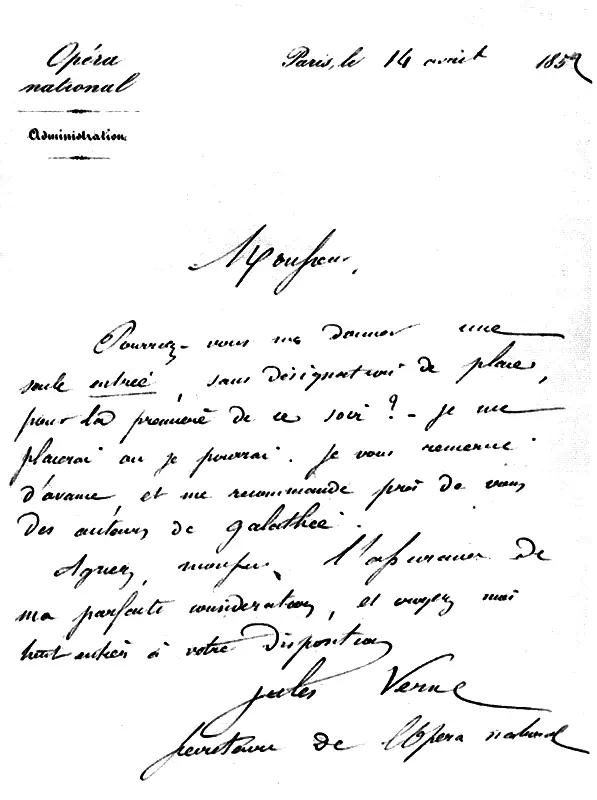 Opéra
national
Administration.
Paris, le 14 avril 1852
Monsieur,
Pourriez-vous me donner une
seule entrée, sans désignation de place,
pour la première de ce soir ? - je me
placerai où je pourrai. Je vous remercie
d'avance et me recommande près de vous
des auteurs de galathée.
Agréez, monsieur, l'assurance de
ma parfaite considération, et croyez moi
tout entier à votre disposition
Jules Verne
Secrétaire de l'Opéra national